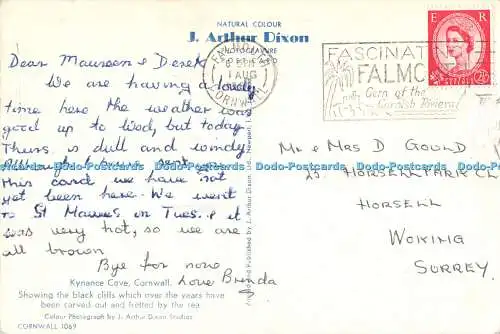 NATURAL COLOUR
J. Arthur Dixon
PHOTOGRAVURE
Dear Maureen & Derek
We are having a lovely
time here the weather was
good up to Wed, but today
Thurs, is dull and windy
Although I have sent
this card we have not
yet been here. We went
to St Mawes on Tues, & it
was very hot, so we are
all brown
Bye for now
Love Brenda
Kynance Cove, Cornwall.
Showing the black cliffs which over the years have
been carved out and fretted by the sea
Colour Photograph by J. Arthur Dixon Studios
CORNWALL 1069
1 AUG
CORNWALL
FASCINATING
FALMO
Gem of the
Cornish Riviera
E R
Mr & Mrs D GOULD
25 HORSELL PARK CL
HORSELL
WOKING
SURREY.
Dodo-Postcards Dodo-Postcards Dodo-Postcards Dodo-Postcards